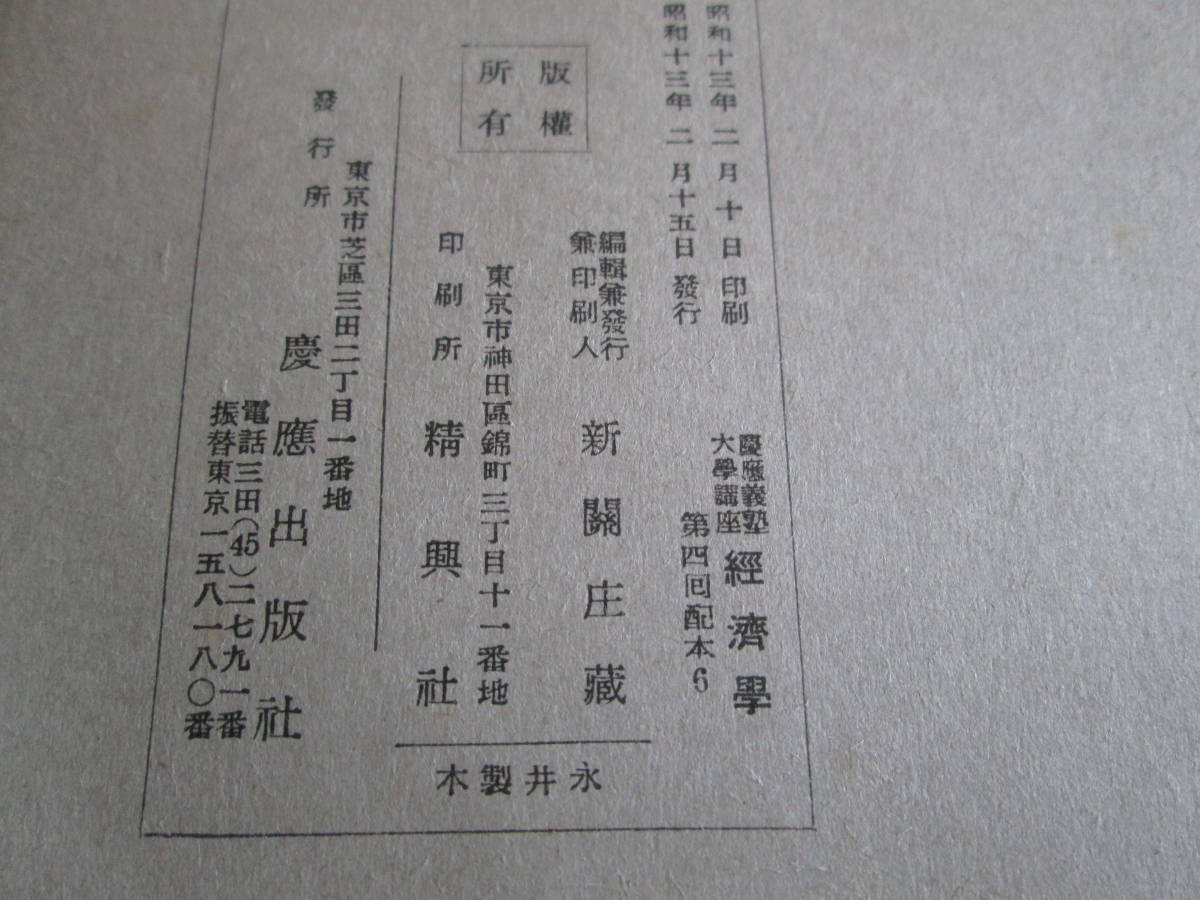 昭和十三年二月十日印刷
昭和十三年二月十五日發行
慶應義塾
大學講座
經濟學
第四回配本6
版權
所有
編輯兼發行
兼印刷人
新關庄藏
東京市神田區錦町三丁目十一番地
印刷所 精興社
東京市芝區三田二丁目一番地
發行所 慶應出版社
電話三田(45)二七九一番
振替東京一五八一八〇番
永井製本